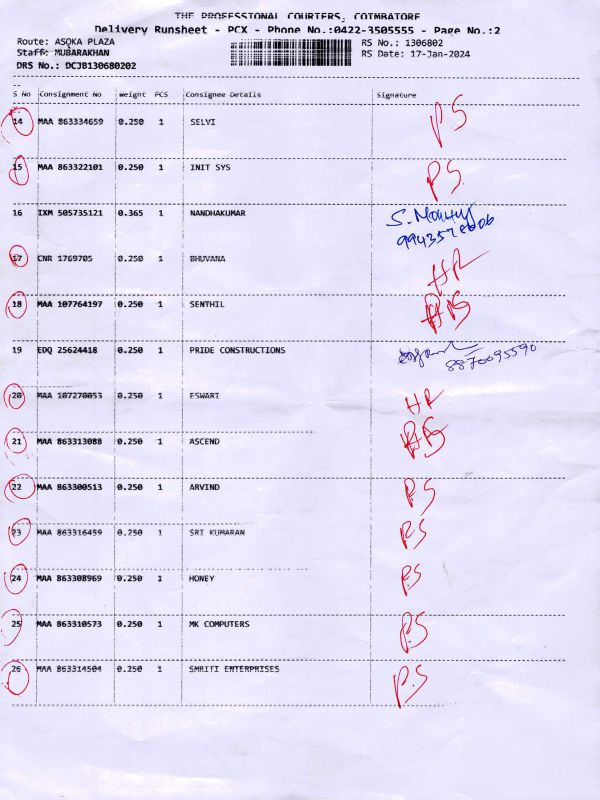 THE PROFESSIONAL COURIERS, COIMBATORE
Delivery Runsheet - PCX - Phone No.:0422-3505555 - Page No.:2
Route: ASOKA PLAZA RS No.: 1306802
Staff: MUBARAKHAN RS Date: 17-Jan-2024
DRS No.: DCJB130680202
S No Consignment No Weight PCS Consignee Details Signature
14 MAA 863334659 0.250 1 SELVI P.S
15 MAA 863322101 0.250 1 INIT SYS P.S.
16 IXM 505735121 0.365 1 NANDHAKUMAR S.
17 CNR 1769705 0.250 1 BHUVANA HR
18 MAA 107764197 0.250 1 SENTHIL
19 EDQ 25624418 0.250 1 PRIDE CONSTRUCTIONS 8870095590
20 MAA 107270053 0.250 1 ESWARI HR
21 MAA 863313088 0.250 1 ASCEND
22 MAA 863300513 0.250 1 ARVIND P.S
23 MAA 863316459 0.250 1 SRI KUMARAN P.S
24 MAA 863308969 0.250 1 HONEY P.S
25 MAA 863310573 0.250 1 MK COMPUTERS P.S
26 MAA 863314504 0.250 1 SMRITI ENTERPRISES P.S